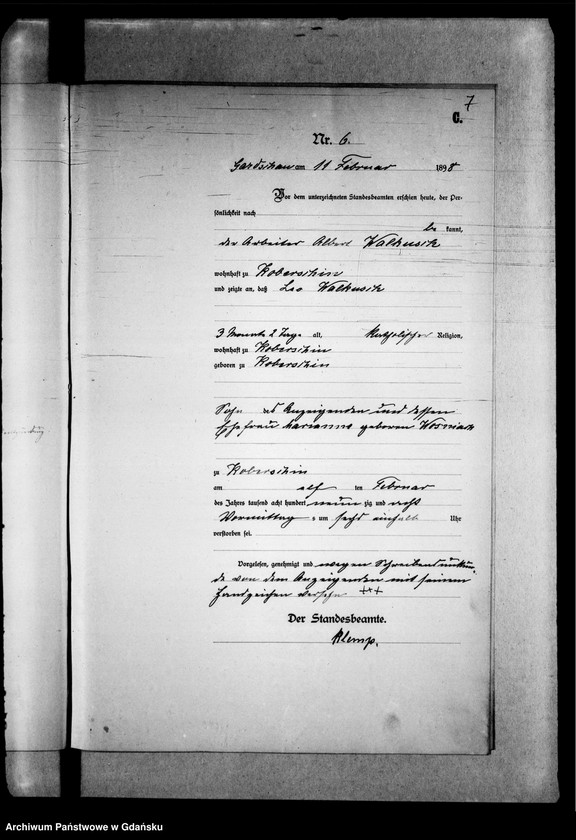 7
C.
Nr. 6.
Gardschau am 11 Februar 1898
Vor dem unterzeichneten Standesbeamten erschien heute, der Per-
sönlichkeit nach
be kannt,
der Arbeiter Albert Walkusch
wohnhaft zu Koberschin
und zeigte an, daß Leo Walkusch
3 Monate 2 Tage alt, katholischer Religion,
wohnhaft zu Koberschin
geboren zu Koberschin
Sohn des Anzeigenden und dessen
Ehefrau Marianna geboren
zu Koberschin
am elf ten Februar
des Jahres tausend acht hundert neun zig und acht
Vormittag s um sechs einhalb Uhr
verstorben sei.
Vorgelesen, genehmigt und wegen Schreibensunkun
de von dem Anzeigenden mit seinem
Handzeichen versehn +++
Der Standesbeamte.
Klemp.
Archiwum Państwowe w Gdańsku